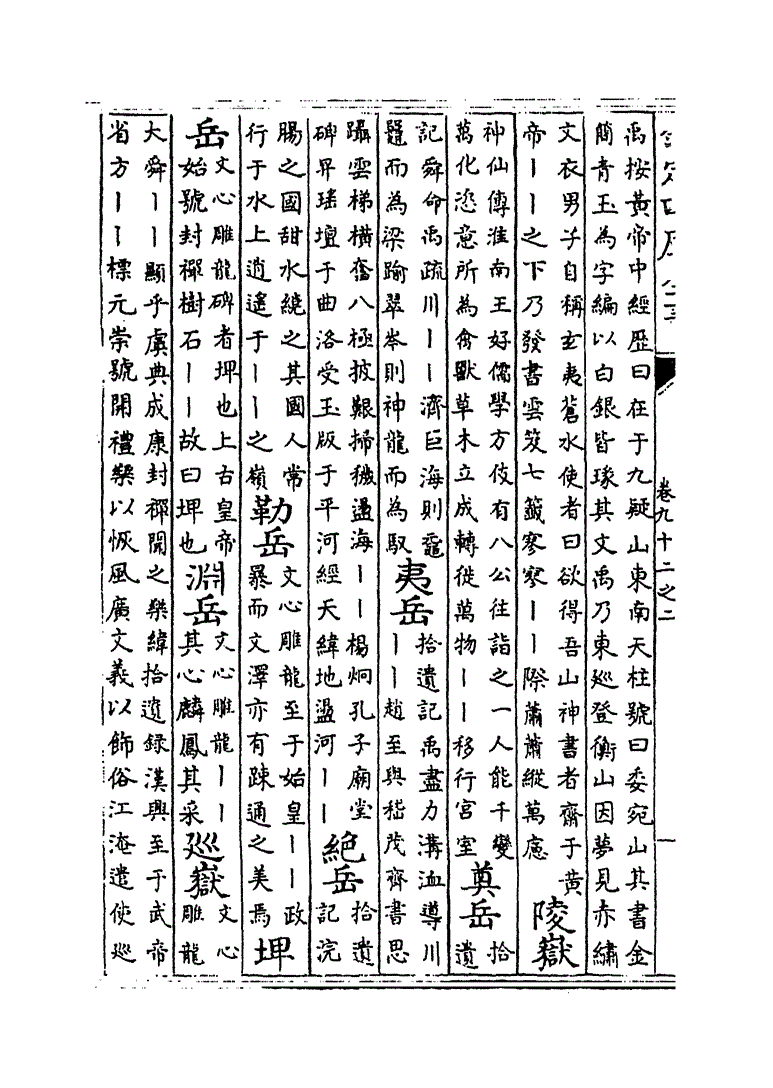 卷九十二之二
一
禹按黄帝中經歴曰在于九疑山東南天柱號曰委宛山其書金
簡青玉為字編以白銀皆瑑其文禹乃東廵登衡山因夢見赤繡
文衣男子自稱玄夷蒼水使者曰欲得吾山神書者齋于黄
帝丨丨之下乃發書雲笈七籤寒寒丨丨際蕭蕭縱萬慮
陵嶽
神仙傳淮南王好儒學方伎有八公往詣之一人能千變
萬化恣意所為禽獸草木立成轉徙萬物丨丨移行宫室
奠岳
拾
遺
記舜命禹疏川丨丨濟巨海則黿
鼉而為梁踰翠岑則神龍而為馭
夷岳
拾遺記禹盡力溝洫導川
丨丨趙至與嵇茂齊書思
躡雲梯横奮八極披艱掃穢蕩海丨丨楊炯孔子廟堂
碑昇瑶壇于曲洛受玉版于平河經天緯地盪河丨丨
絶岳
拾遺
記浣
腸之國甜水繞之其國人常
行于水上逍遥于丨丨之嶺
勒岳
文心雕龍至于始皇丨丨政
暴而文澤亦有疎通之美焉
埤
岳
文心雕龍碑者埤也上古皇帝
始號封禪樹石丨丨故曰埤也
淵岳
文心雕龍丨丨
其心麟鳳其采
廵嶽
文心
雕龍
大舜丨丨顯乎虞典成康封禪聞之樂緯拾遺録漢興至于武帝
省方丨丨標元崇號開禮樂以恢風廣文義以飾俗江淹遣使廵